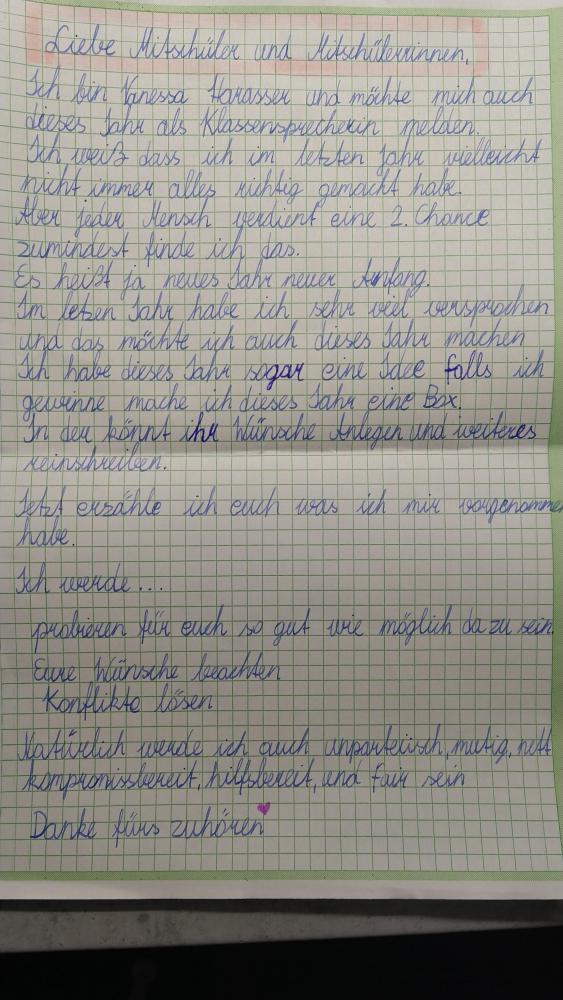 Liebe Mitschüler und Mitschülerrinnen,
Ich bin Vanessa Harasser und möchte mich auch
dieses Jahr als Klassensprecherin melden.
Ich weiß dass ich im letzten Jahr vielleicht
nicht immer alles richtig gemacht habe.
Aber jeder Mensch verdient eine 2. Chance
zumindest finde ich das.
Es heißt ja neues Jahr neuer Anfang.
Im letzen Jahr habe ich sehr viel versprochen
und das möchte ich auch dieses Jahr machen
Ich habe dieses Jahr sogar eine Idee falls ich
gewinne mache ich dieses Jahr eine Box.
In der könnt ihr Wünsche Anlegen und weiteres
reinschreiben.
Jetzt erzähle ich euch was ich mir vorgenommen
habe.
Ich werde...
probieren für euch so gut wie möglich da zu sein.
Eure Wünsche beachten
Konflikte lösen
Natürlich werde ich auch unparteiisch, mutig, nett
kompromissbereit, hilfsbereit, und fair sein
Danke fürs zuhören